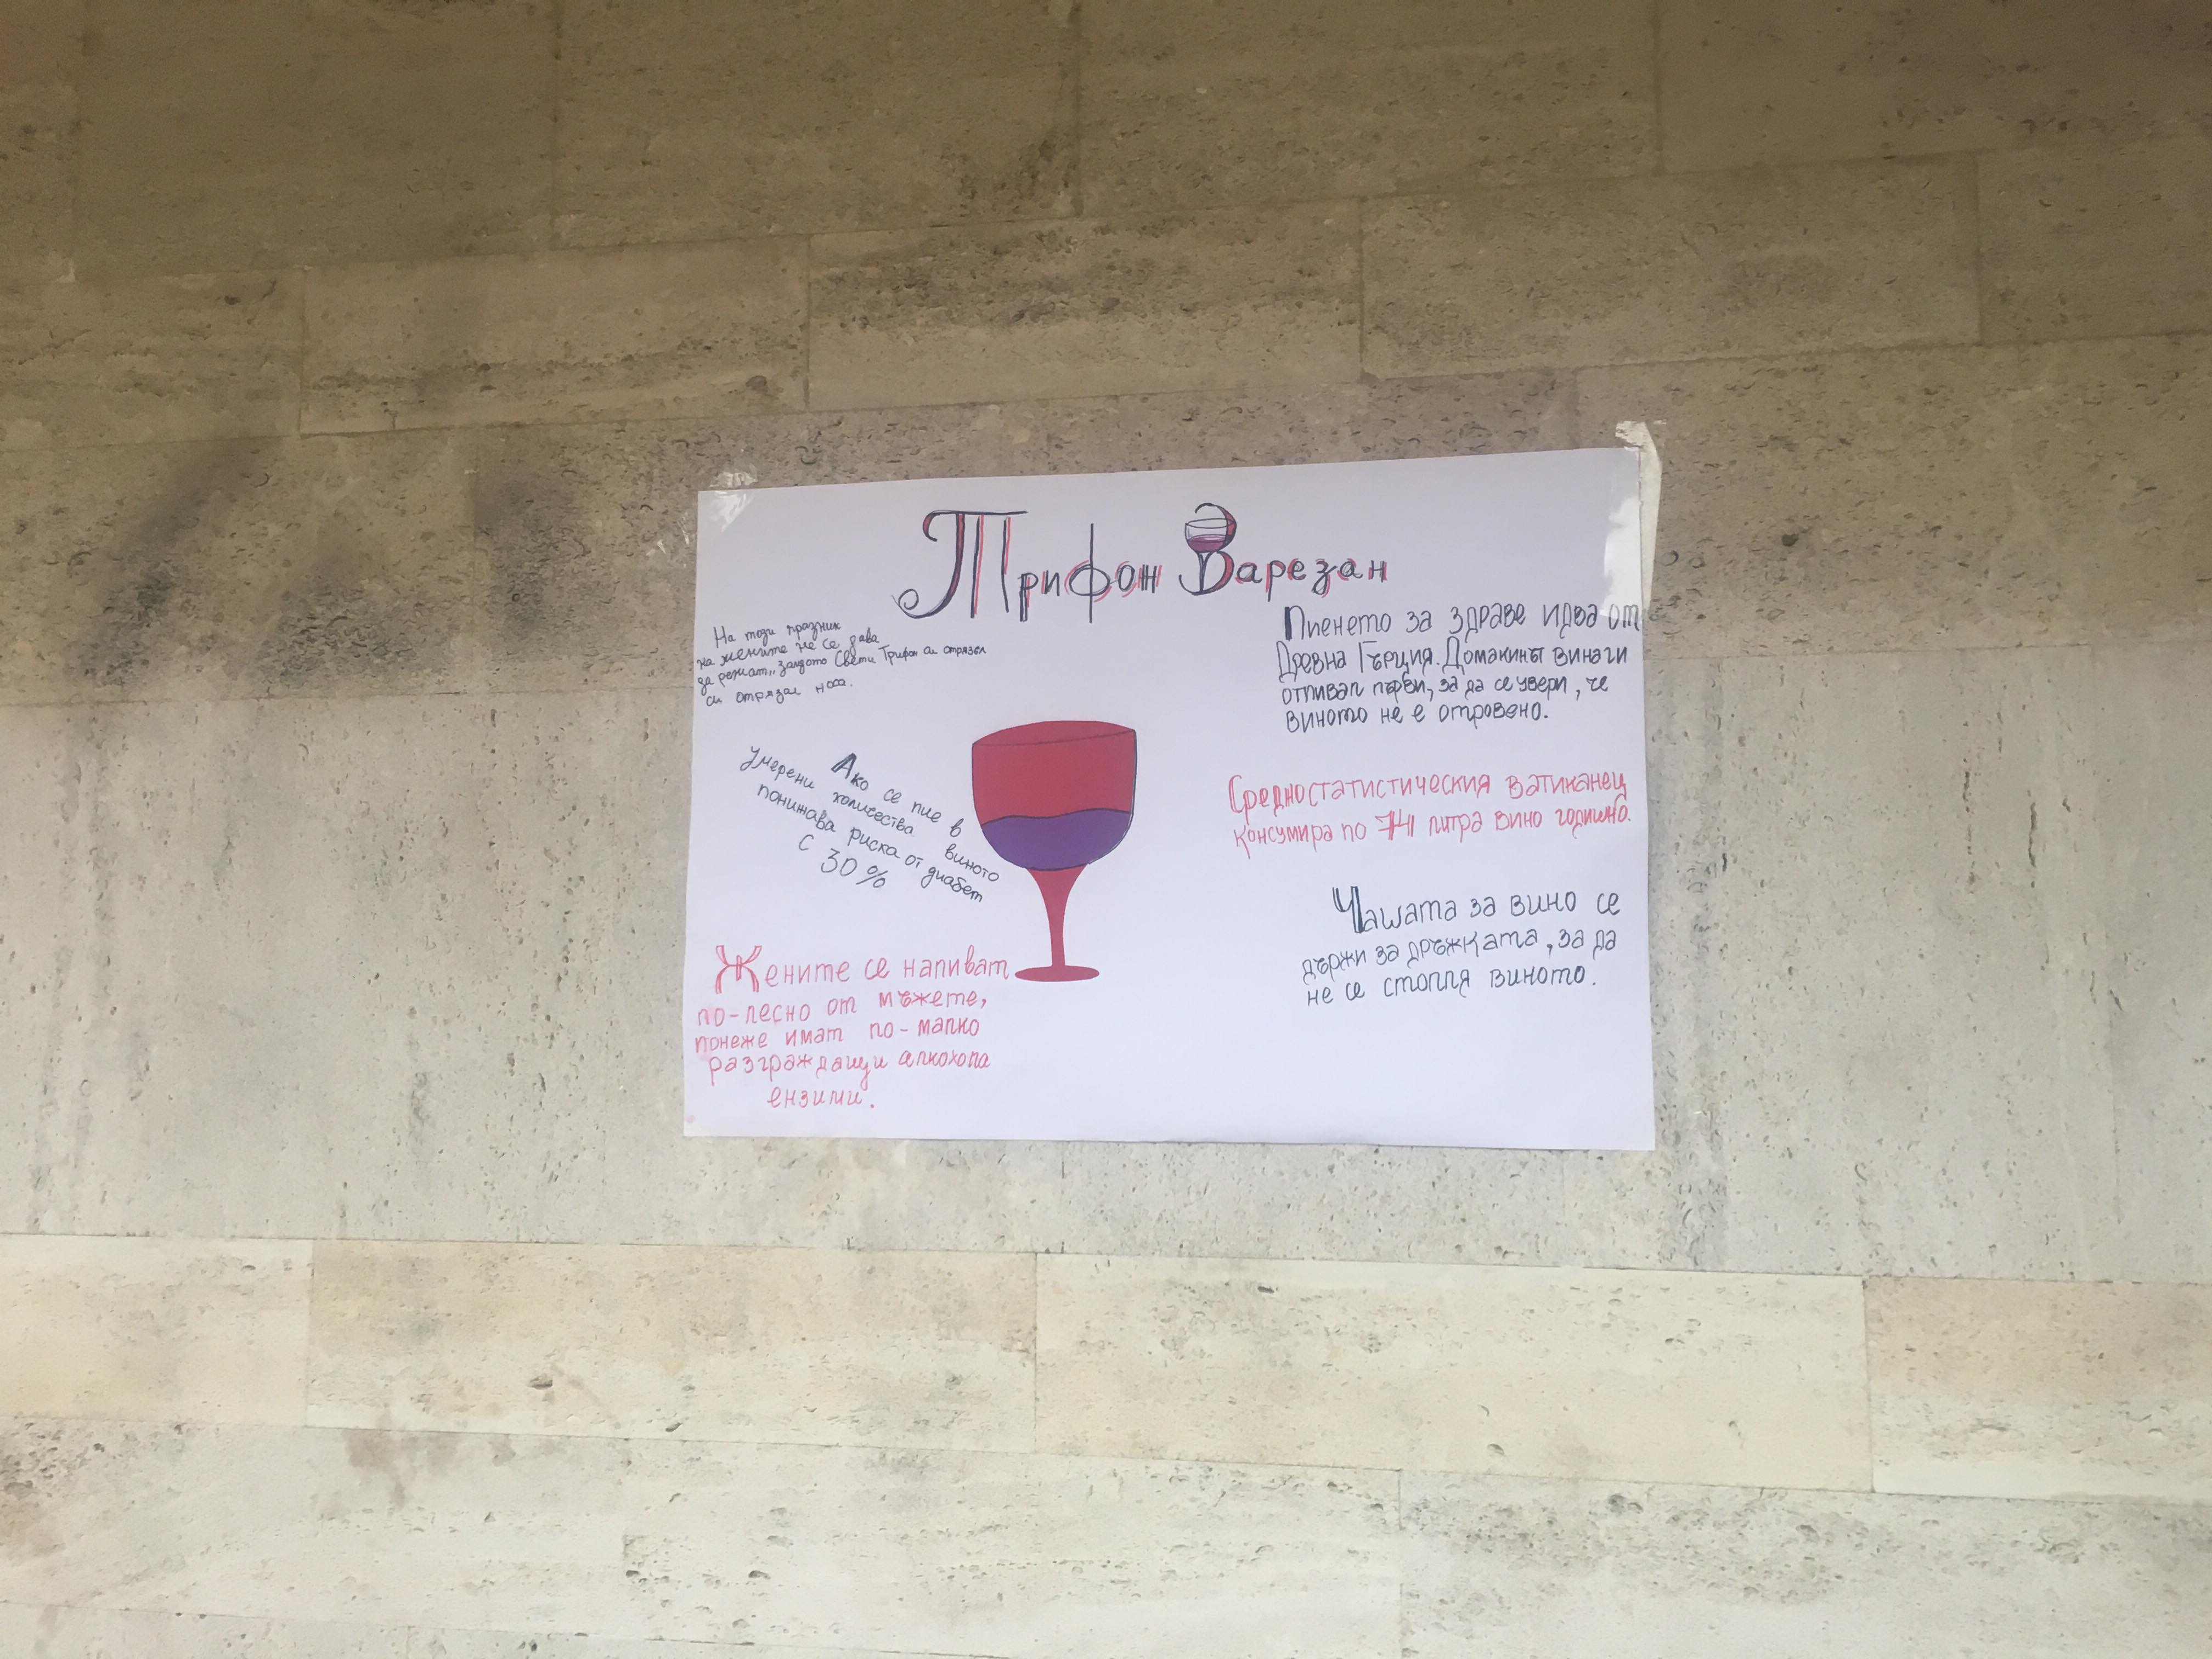 Трифон Зарезан
На този празник
на жените не се дава
да режат, защото Свети Трифон си отрязал
си отрязал носа.
Ако се пие в
умерени количества виното
понижава риска от диабет
с 30 %
Жените се напиват
по-лесно от мъжете,
понеже имат по-малко
разграждащи алкохола
ензими.
Пиенето за здраве идва от
Древна Гърция. Домакинът винаги
отпивал първи, за да се увери, че
виното не е отровено.
Средностатистическия ватиканец
консумира по 74 литра вино годишно.
Чашата за вино се
държи за дръжката, за да
не се стопля виното.